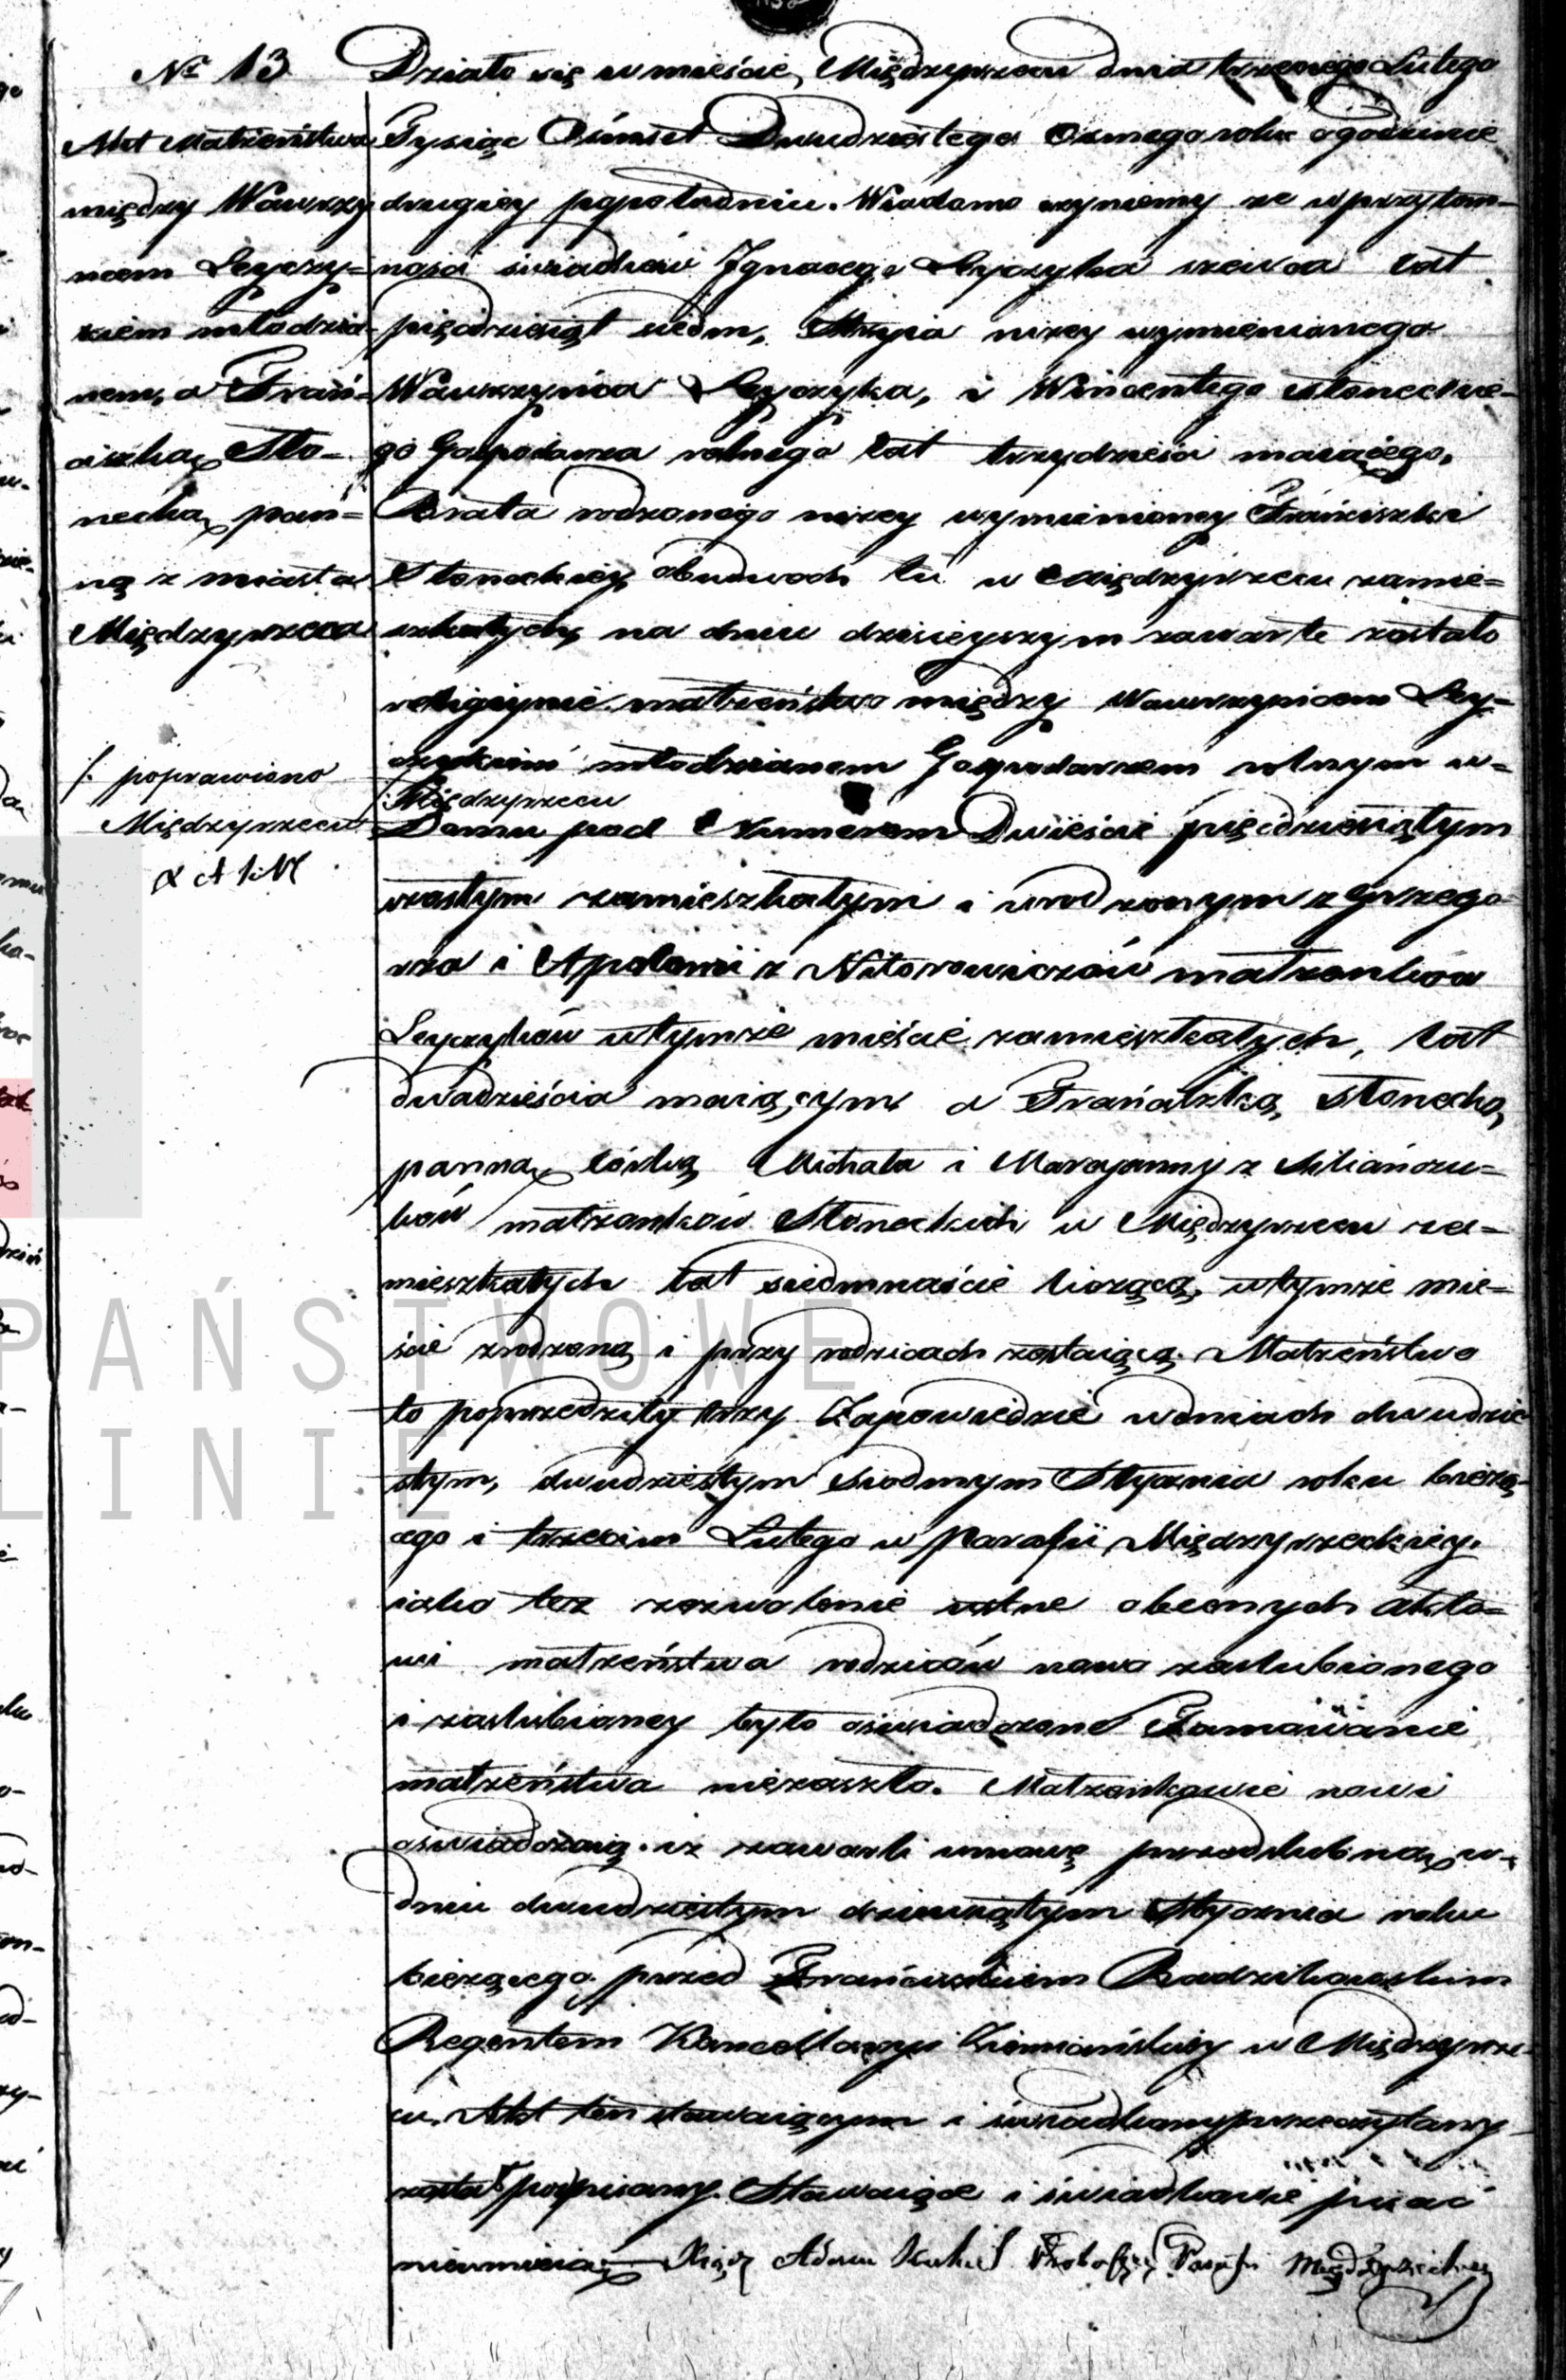 Nr 13
Akt Małżeństwa
między Wawrzy=
ncem Leyczy=
kiem młodzia=
nem, a Fran=
ciszką Sło=
necką pan=
ną z miasta
Międzyrzeca
/. poprawiono
Międzyrzecu
Działo się w mieście Międzyrzecu dnia trzeciego Lutego
Tysiąc Ośmset Dwudziestego Osmego roku o godzinie
drugiey popołudniu. Wiadomo czyniemy że w przytom=
ności świadków Ignacego Leyczyka szewca lat
pięćdziesiąt siedm, Stryia niżey wymienionego
Wawrzyńca Leyczyka, i Wincentego Słoneckie=
go Gospodarza rolnego lat trzydzieści maiącego,
Brata rodzonego niżey wymienioney Franciszki
Słoneckiey, obudwoch tu w Międzyrzecu zamie=
szkałych, na dniu dzisieyszym zawarte zostało
religiynie małżeństwo między Wawrzyńcem Ley=
czykiem młodzianem Gospodarzem rolnym w=
/: Międzyrzecu
Domu pod Numerem Dwieście pięćdziesiątym
szostym zamieszkałym i urodzonym z Grzego=
rza i Apolonii z Nitorowiczów małżonków
Leyczyków w tymże mieście zamieszkałych, lat
dwadzieścia maiącym a Franciszką Słonecką
panną, córką Michała i Maryanny z
ków małżonków Słoneckich w Międzyrzecu za=
mieszkałych lat siedmnaście liczącą, w tymże mie=
ście zrodzoną i przy rodzicach zostaiącą. Małżeństwo
to poprzedziły trzy Zapowiedzie w dniach dwudzie
stym, dwudziestym siodmym Stycznia roku bieżą=
cego i trzecim Lutego w Parafii Międzyrzeckiey.
iako też zezwolenie ustne obecnych akto=
wi małżeństwa rodziców nowo zaślubionego
i zaślubioney było oświadczone Tamowanie
małżeństwa niezaszło. Małżonkowie nowi
oświadczaią iż zawarli umowę przedślubną w=
dniu dwudziestym dziewiątym Stycznia roku
bieżącego przed Franciszkiem Radzikowskim
Regentem Kancellaryi Ziemiańskiey w Międzyrze=
cu. Akt ten stawaiącym i świadkom przeczytany
został podpisany. Stawaiące i świadkowie pisać
nieumieią. Xiądz Adam Proboszcz Parafii Międzyrzeckiey